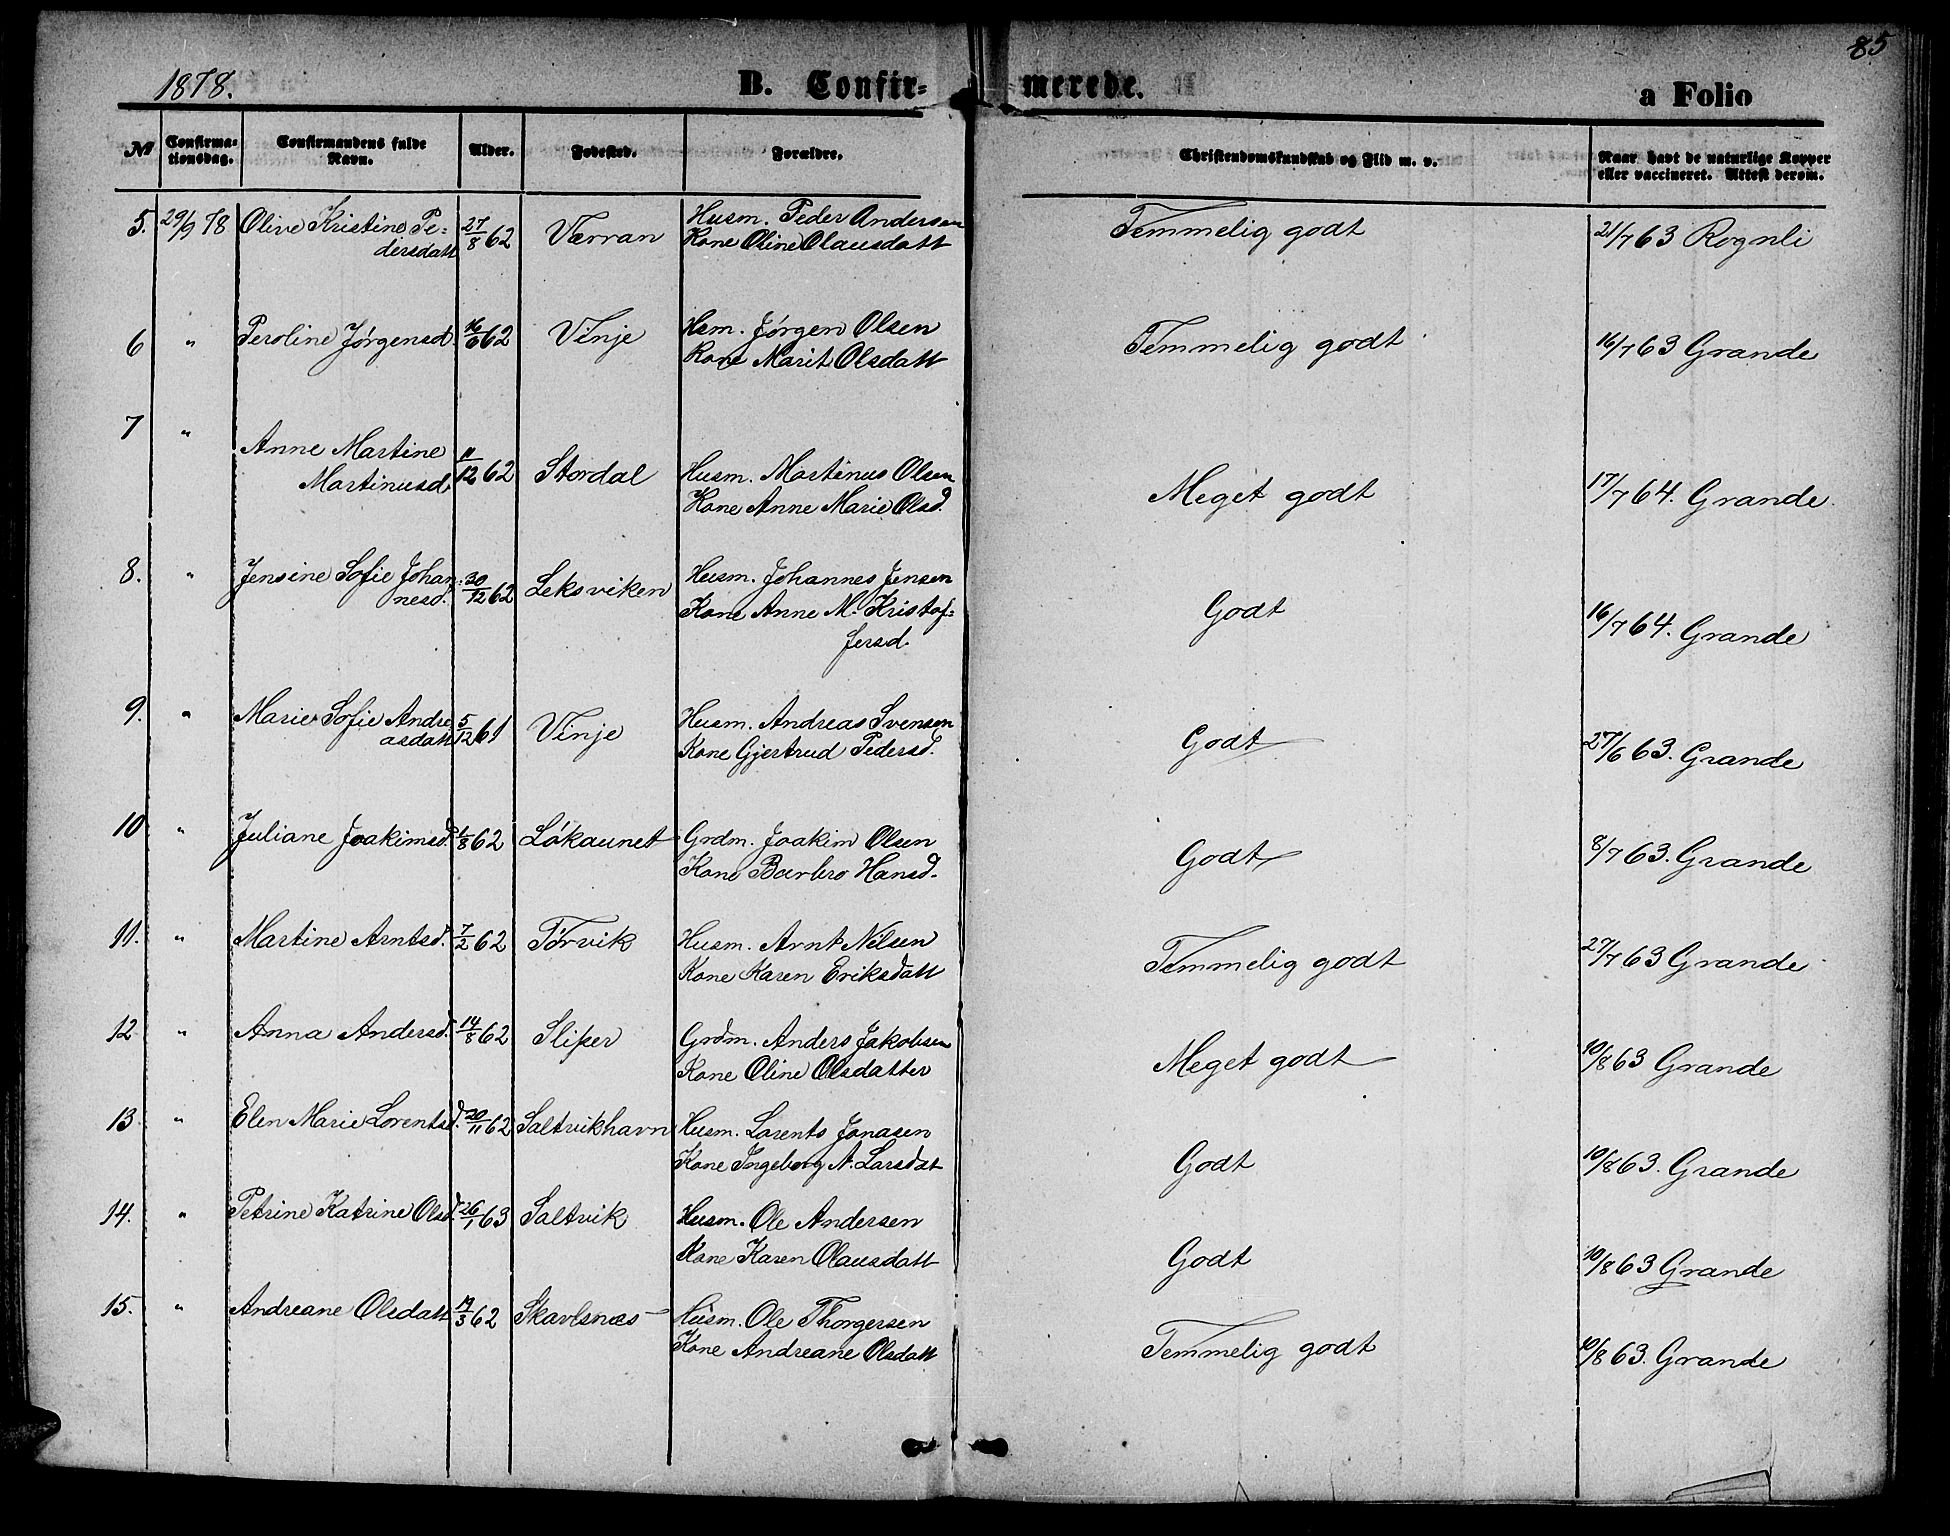 85
1878.
B. Confirmerede.
a Folio
No
Confirmationsdag.
Confirmandens fulde Navn.
Alder.
Fødested.
Forældre.
Christendomskundskab og Flid m. v.
Naar havt de naturlige Kopper eller vaccineret. Attest derom.
5. 29/9 78 Olive Kristine Pe- 27/8 62 Værran Husm. Peder Andersen Temmelig godt 21/7 63 Rognli
dersdatt Kone Oline Olausdatt
6 " Peroline Jørgensd. 62 Vinje Hsm. Jørgen Olsen Temmelig godt 16/7 63 Grande
Kone Marit Olsdatt
7 " Anne Martine 11/12 62 Stordal Husm. Martinus Olsen Meget godt 17/7 64. Grande
Martinusd. Kone Anne Marie Olsd.
8. " Jensine Sofie Johan- 30/12 62 Leksviken Husm. Johannes Jensen Godt 16/7 64. Grande
nesd. Kone Anne M. Kristof-
fersd.
9. " Marie Sofie Andre 5/12 61 Vinje Husm. Andreas Svensen Godt 27/6 63. Grande
asdatt Kone Gjertrud Pedersd.
10 " Juliane Joakimsd. 1/8 62 Løkaunet Grdm. Joakim Olsen Godt 8/7 63. Grande
Kone Barbro Hansd.
11. " Martine Arntsd. 7/2 62 Tørvik Husm. Arnt Nilsen Temmelig godt 27/7 63 Grande
Kone Karen Eriksdatt
12 " Anna Andersd. 14/8 62 Sliper Grdm. Anders Jakobsen Meget godt 10/8 63 Grande
Kone Oline Olsdatter
13 " Elen Marie Lorentsd. 20/11 62 Saltvikhavn Husm. Lorents Jonasen Godt 10/8 63. Grande
Kone Ingeborg A. Larsdat
14. " Petrine Katrine Olsd. 26/1 63 Saltvik Husm. Ole Andersen Godt 10/8 63 Grande
Kone Karen Olausdatt
15. " Andreane Olsdatt 62 Skavlsnæs Husm. Ole Thorgersen Temmelig godt 10/8 63. Grande
Kone Andreane Olsdatt